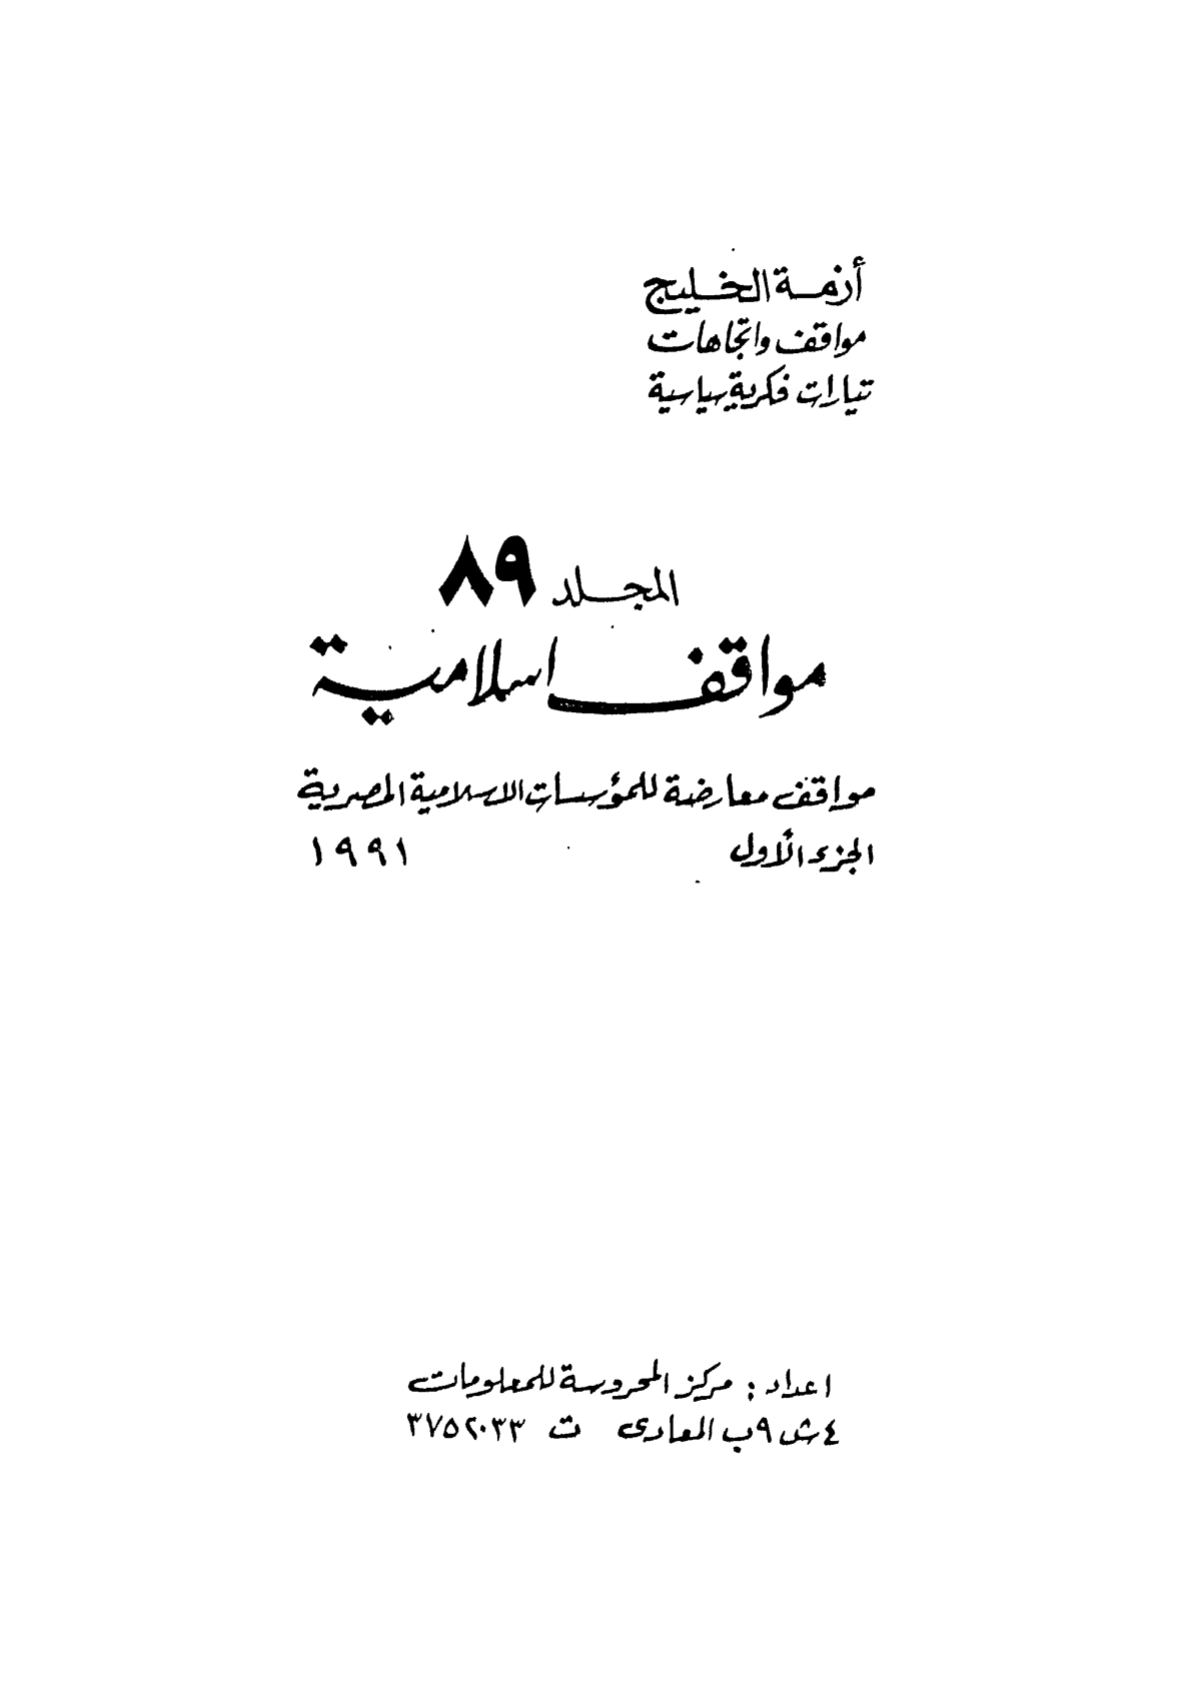 أزمة الخليج
مواقف واتجاهات
تيارات فكرية سياسية
المجلد ٨٩
مواقف اسلامية
مواقف معارضة للمؤسسات الاسلامية المصرية
الجزء الأول ١٩٩١
اعداد : مركز المحروسة للمعلومات
٤ ش ٩ب المعادى ت ٣٧٥٢٠٣٣